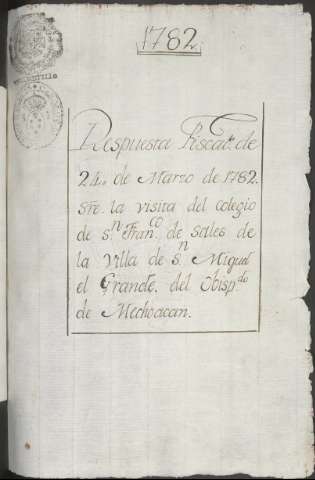 1782
Respuesta Fiscal. de
24. de Marzo de 1782.
Sre. la visita del colegio
de Sn. Franco. de Salles de
la Villa de Sn. Miguel
el Grande. del Obispdo.
de Mechoacan.